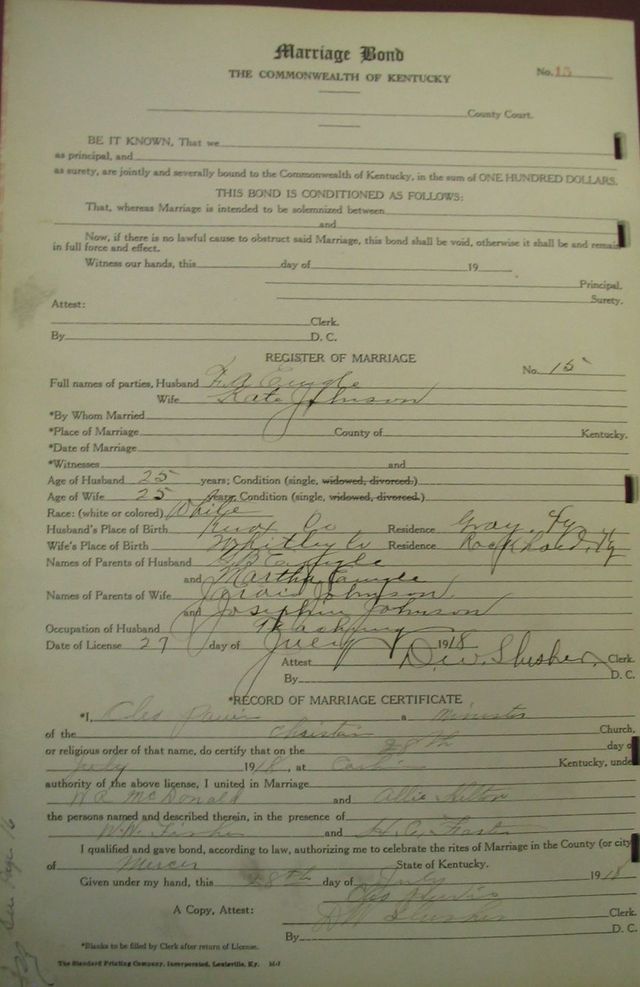 Marriage Bond
THE COMMONWEALTH OF KENTUCKY
No. 15
County Court.
BE IT KNOWN, That we
as principal, and
as surety, are jointly and severally bound to the Commonwealth of Kentucky, in the sum of ONE HUNDRED DOLLARS.
THIS BOND IS CONDITIONED AS FOLLOWS:
That, whereas Marriage is intended to be solemnized between
and
Now, if there is no lawful cause to obstruct said Marriage, this bond shall be void, otherwise it shall be and remain
in full force and effect.
Witness our hands, this day of 19
Principal.
Surety.
Attest:
Clerk.
By D. C.
REGISTER OF MARRIAGE
No. 15
Full names of parties, Husband
Wife Kate Johnson
*By Whom Married
*Place of Marriage County of Kentucky.
*Date of Marriage
*Witnesses and
Age of Husband 25 years; Condition (single, widowed, divorced.)
Age of Wife 25 years; Condition (single, widowed, divorced.)
Race: (white or colored) White
Husband's Place of Birth Knox Co Residence Gray, Ky
Wife's Place of Birth Whitley Co Residence Rockhold, Ky
Names of Parents of Husband
and Martha
Names of Parents of Wife Jarvis Johnson
and Josephin Johnson
Occupation of Husband Teaching
Date of License 27 day of July 1918
Attest D. W. Slusher, Clerk.
By D. C.
*RECORD OF MARRIAGE CERTIFICATE
*I, Cleo a Minister
of the Christian Church,
or religious order of that name, do certify that on the 28th day o
July 1918, at Corbin Kentucky, unde
authority of the above license, I united in Marriage
W R McDonald and Allie Hilton
the persons named and described therein, in the presence of
W. W. Fisher and H. C.
I qualified and gave bond, according to law, authorizing me to celebrate the rites of Marriage in the County (or city
of Mercer State of Kentucky.
Given under my hand, this 28th day of July 1918
Cleo
A Copy, Attest: D W Slusher Clerk.
By D. C.
*Blanks to be filled by Clerk after return of License.
The Standard Printing Company, Incorporated, Louisville, Ky.
See Page 16